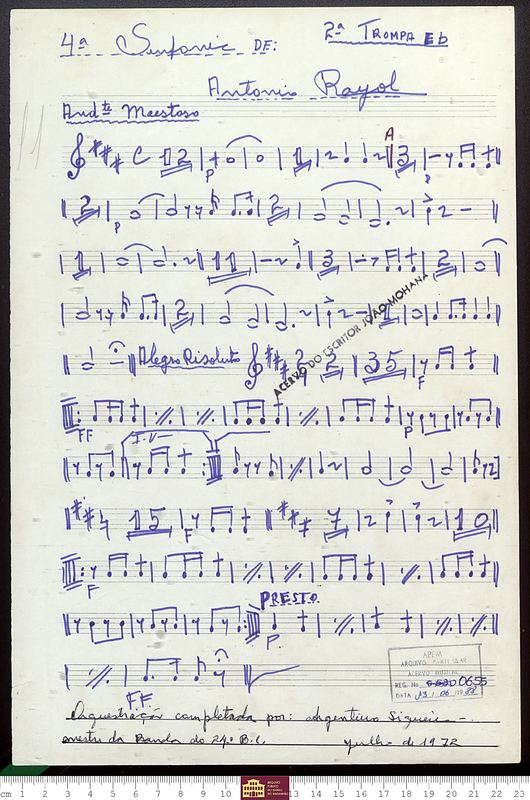 4ª Sinfonia DE: 2ª TROMPA Eb
Antonio Rayol
And.te Maestoso
C 12 P 1 A 3 P
2 P 2
1 11 3 2
2 1
Alegro Risoluto 2 2 35 F
FF P
1.V
15 F 7 10
F
PRESTO
P.
F.F.
ACERVO DO ESCRITOR JOÃO MOHANA
APEM
ARQUIVO PARTICULAR
ACERVO MUSICAL
REG. No. 0655
DATA 13 / 06 / 19 88
Orquestração completada por: Argentino Siqueira -
mestre da Banda do 24º B.C. Julho de 1972
cm 1 2 3 4 5 6 7 8 9 10 11 12 13 14 15 16 17 18 19 20 21 22 23